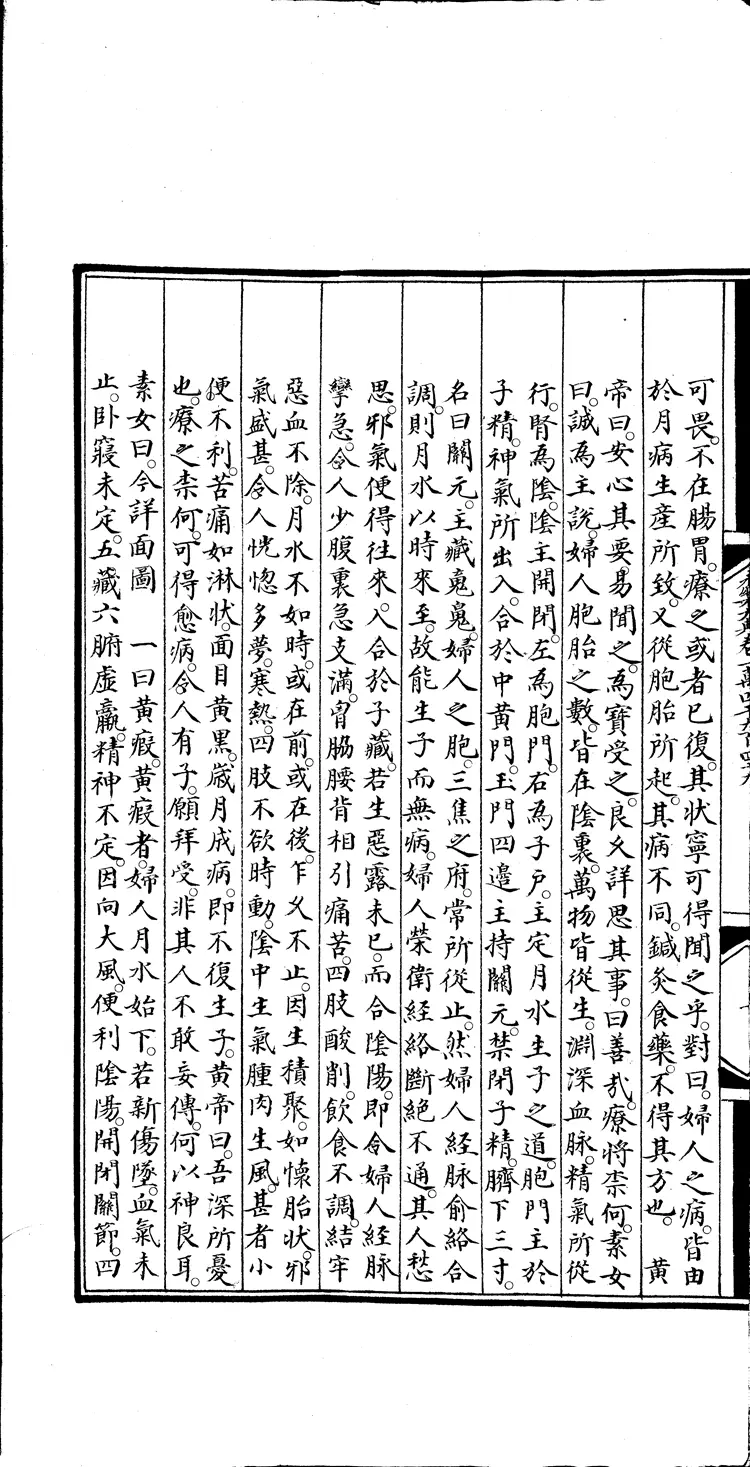 可畏。不在腸胃。療之或者已復。其狀寧可得聞之乎。對曰。婦人之病。皆由
於月病生産所致。又從胞胎所起。其病不同。鍼灸食藥。不得其方也。 黃
帝曰。安心其要易聞之。為寶受之。良久詳思其事。曰善哉。療將柰何。素女
曰。誠為主說。婦人胞胎之數。皆在陰裏。萬物皆從生。淵深血脉。精氣所從
行。腎為陰。陰主開閉。左為胞門。右為子戶。主定月水生子之道。胞門主於
子精。神氣所出入。合於中黃門。玉門四邊主持關元。禁閉子精。臍下三寸。
名曰關元。主藏䰟䰟。婦人之胞。三焦之府。常所從止。然婦人經脉俞絡合
調。則月水以時來至。故能生子而無病。婦人榮衛經絡斷絕不通。其人愁
思。邪氣便得往來。入合於子藏。若生惡露未已。而合陰陽。即令婦人經脉
攣急。令人少腹裏急支滿。胷脇腰背相引痛苦。四肢酸削。飲食不調。結牢
惡血不除。月水不如時。或在前。或在後。乍久不止。因生積聚。如懷胎狀。邪
氣盛甚。令人恍惚多夢。寒熱。四肢不欲時動。陰中生氣腫肉生風。甚者小
便不利。苦痛如淋狀。面目黃黑。歲月成病。即不復生子。黃帝曰。吾深所憂
也。療之柰何。可得愈病。令人有子。願拜受。非其人不敢妄傳。何以神良耳。
素女曰。今詳面圖 一曰黃瘕。黃瘕者。婦人月水始下。若新傷墜。血氣未
止。卧寢未定。五藏六腑虛羸。精神不定。因向大風。便利陰陽。開閉關節。四